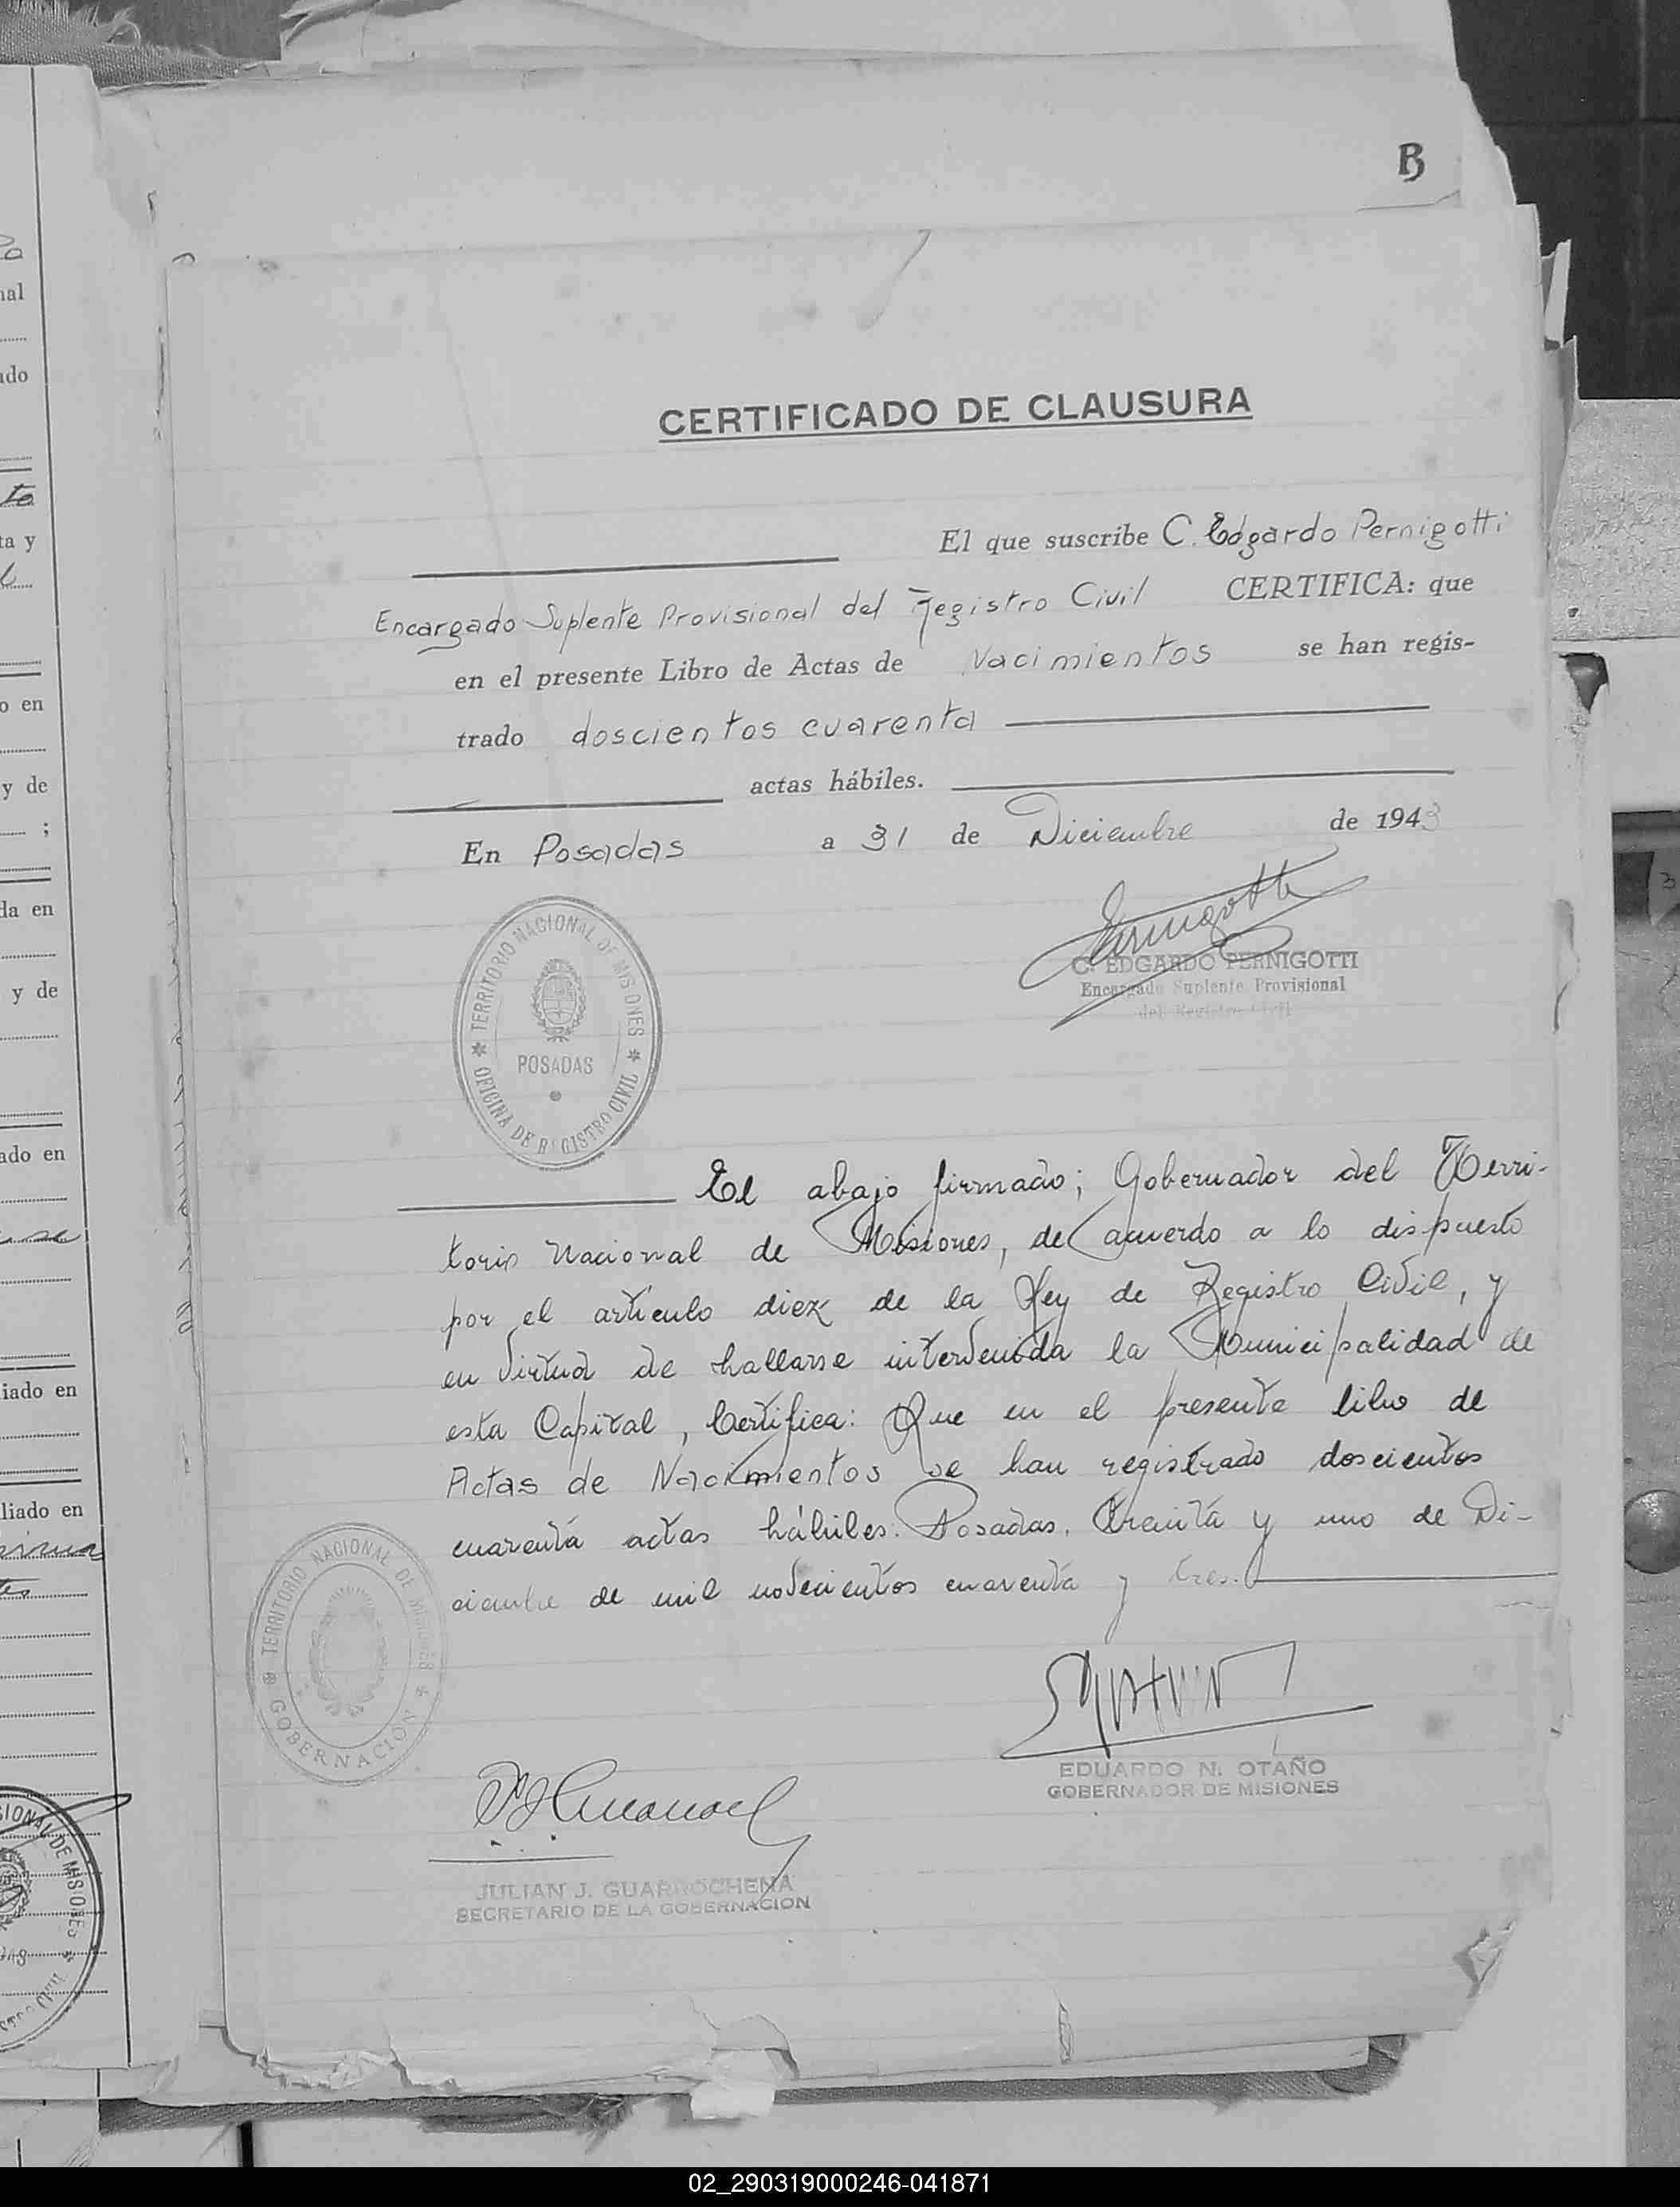 B
CERTIFICADO DE CLAUSURA
El que suscribe C. Edgardo Pernigotti
Encargado Suplente Provisional del Registro Civil CERTIFICA: que
en el presente Libro de Actas de Nacimientos se han regis-
trado doscientos cuarenta
actas hábiles.
En Posadas a 31 de Diciembre de 1943
C. EDGARDO PERNIGOTTI
Encargado Suplente Provisional
del Registro Civil
TERRITORIO NACIONAL DE MISIONES
POSADAS
OFICINA DE REGISTRO CIVIL
El abajo firmado; Gobernador del Terri-
torio Nacional de Misiones, de acuerdo a lo dispuesto
por el artículo diez de la Ley de Registro Civil, y
en virtud de hallarse intervenida la Municipalidad de
esta Capital, Certifica: Que en el presente libro de
Actas de Nacimientos se han registrado doscientos
cuarenta actas hábiles. Posadas, treinta y uno de Di-
ciembre de mil novecientos cuarenta y tres.
TERRITORIO NACIONAL DE MISIONES
GOBERNACIÓN
EDUARDO N. OTAÑO
GOBERNADOR DE MISIONES
JULIAN J. GUARROCHENA
SECRETARIO DE LA GOBERNACION
nal
ado
ta y
o en
y de
;
da en
y de
ado en
iado en
liado en
02_290319000246-041871